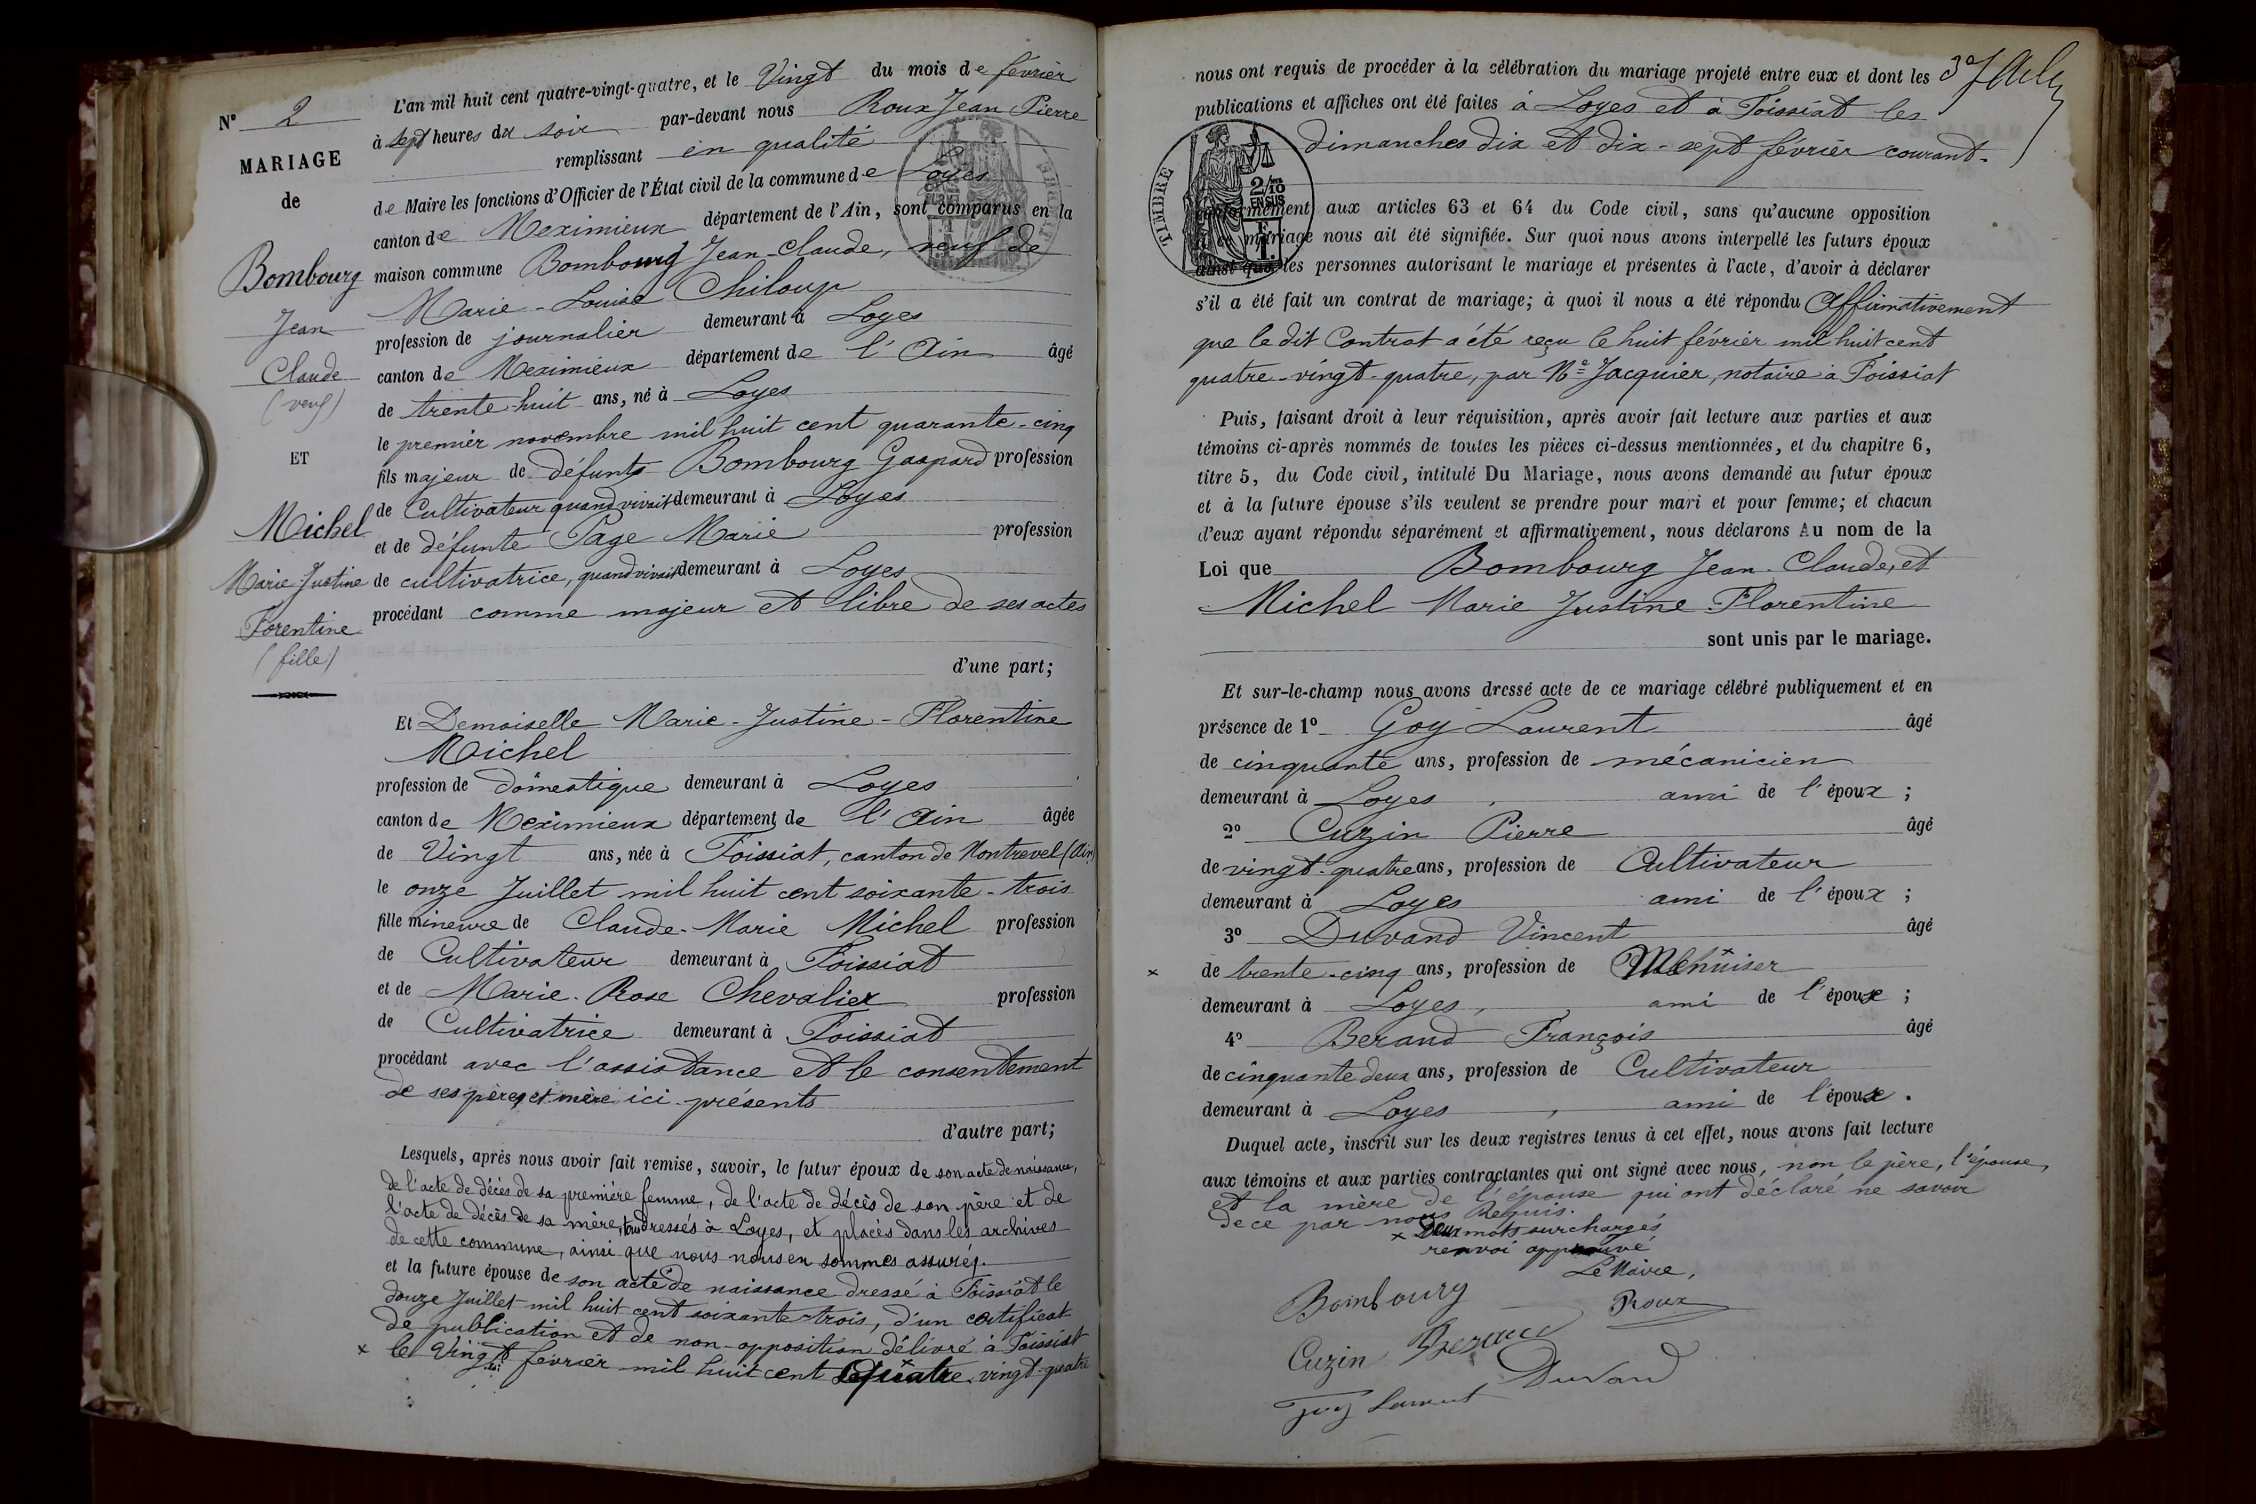 N° 2
MARIAGE
de
Bombourg
Jean
Claude
(veuf)
ET
Michel
Marie Justine
Forentine
(fille)
L'an mil huit cent quatre-vingt-quatre, et le Vingt du mois de février
à sept heures du soir par-devant nous Roux Jean Pierre
remplissant en qualité
de Maire les fonctions d'Officier de l'État civil de la commune de Loyes
canton de Meximieux département de l'Ain, sont comparus en la
maison commune Bombourg Jean-Claude, veuf de
Marie-Louise Chiloup
profession de journalier demeurant à Loyes
canton de Meximieux département de l'Ain âgé
de trente-huit ans, né à Loyes
le premier novembre mil huit cent quarante-cinq
fils majeur de défunts Bombourg Gaspard profession
de Cultivateur quand vivait demeurant à Loyes
et de défunte Page Marie profession
de cultivatrice, quand vivait demeurant à Loyes
procédant comme majeur et libre de ses actes
d'une part;
Et Demoiselle Marie-Justine-Florentine
Michel
profession de domestique demeurant à Loyes
canton de Meximieux département de l'Ain âgée
de Vingt ans, née à Foissiat, canton de Montrevel (Ain)
le onze Juillet mil huit cent soixante-trois
fille mineure de Claude-Marie Michel profession
de Cultivateur demeurant à Foissiat
et de Marie-Rose Chevalier profession
de Cultivatrice demeurant à Foissiat
procédant avec l'assistance et le consentement
de ses père et mère ici présents
d'autre part;
Lesquels, après nous avoir fait remise, savoir, le futur époux de son acte de naissance,
de l'acte de décès de sa première femme, de l'acte de décès de son père et de
l'acte de décès de sa mère, tous dressés à Loyes, et placés dans les archives
de cette commune, ainsi que nous nous en sommes assurés.
et la future épouse de son acte de naissance dressé à Foissiat le
douze Juillet mil huit cent soixante-trois, d'un certificat
de publication et de non-opposition délivré à Foissiat
x le Vingt février mil huit cent quatre-vingt-quatre
nous ont requis de procéder à la célébration du mariage projeté entre eux et dont les
publications et affiches ont été faites à Loyes et à Foissiat les
dimanches dix et dix-sept février courant.
TIMBRE
2/10 EN SUS
conformément aux articles 63 et 64 du Code civil, sans qu'aucune opposition
à ce mariage nous ait été signifiée. Sur quoi nous avons interpellé les futurs époux
ainsi que les personnes autorisant le mariage et présentes à l'acte, d'avoir à déclarer
s'il a été fait un contrat de mariage; à quoi il nous a été répondu Affirmativement
que le dit Contrat a été reçu le huit février mil huit cent
quatre-vingt-quatre, par Me Jacquier, notaire à Foissiat
Puis, faisant droit à leur réquisition, après avoir fait lecture aux parties et aux
témoins ci-après nommés de toutes les pièces ci-dessus mentionnées, et du chapitre 6,
titre 5, du Code civil, intitulé Du Mariage, nous avons demandé au futur époux
et à la future épouse s'ils veulent se prendre pour mari et pour femme; et chacun
d'eux ayant répondu séparément et affirmativement, nous déclarons Au nom de la
Loi que Bombourg Jean-Claude, et
Michel Marie Justine Florentine
sont unis par le mariage.
Et sur-le-champ nous avons dressé acte de ce mariage célébré publiquement et en
présence de 1° Goy Laurent âgé
de cinquante ans, profession de mécanicien
demeurant à Loyes, ami de l'époux;
2° Cuzin Pierre âgé
de vingt-quatre ans, profession de Cultivateur
demeurant à Loyes ami de l'époux;
3° Duvand Vincent âgé
x de trente-cinq ans, profession de Menuiser
demeurant à Loyes, ami de l'épouse;
4° Berand François âgé
de cinquante deux ans, profession de Cultivateur
demeurant à Loyes, ami de l'épouse.
Duquel acte, inscrit sur les deux registres tenus à cet effet, nous avons fait lecture
aux témoins et aux parties contractantes qui ont signé avec nous, non le père, l'épouse,
et la mère de l'épouse qui ont déclaré ne savoir
de ce par nous Requis.
x Deux mots surchargés
renvoi approuvé
Le Maire,
Bombourg Roux
Cuzin Berand
Duvand
Goy Laurent